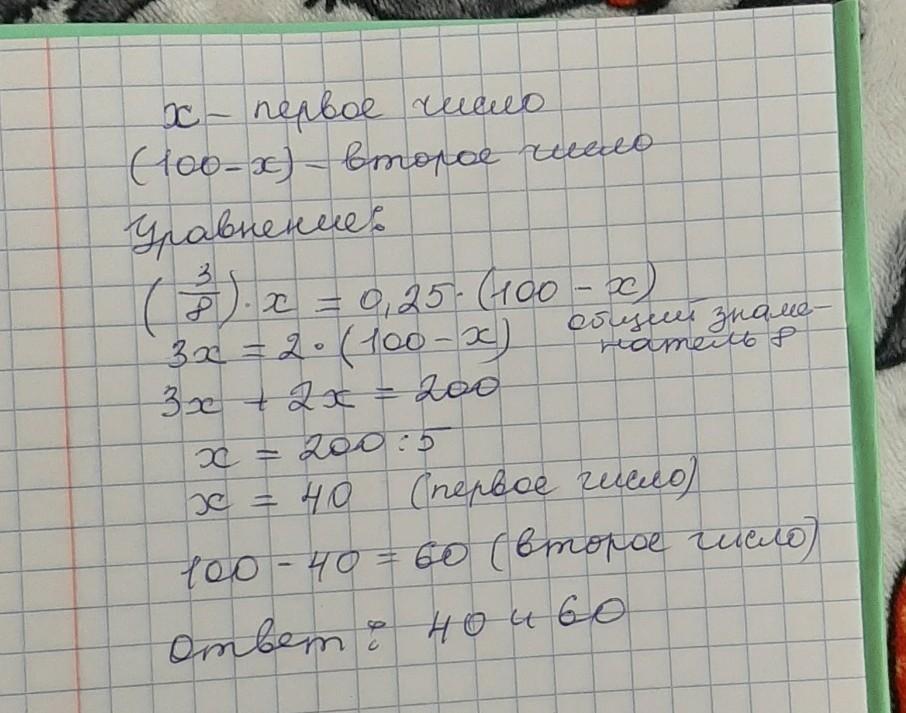 x – первое число
(100 – x) – второе число
Уравнение:
(3/8) · x = 0,25 · (100 – x)
общий знаме-
3x = 2 · (100 – x)
натель 8
3x + 2x = 200
x = 200 : 5
x = 40 (первое число)
100 – 40 = 60 (второе число)
Ответ: 40 и 60